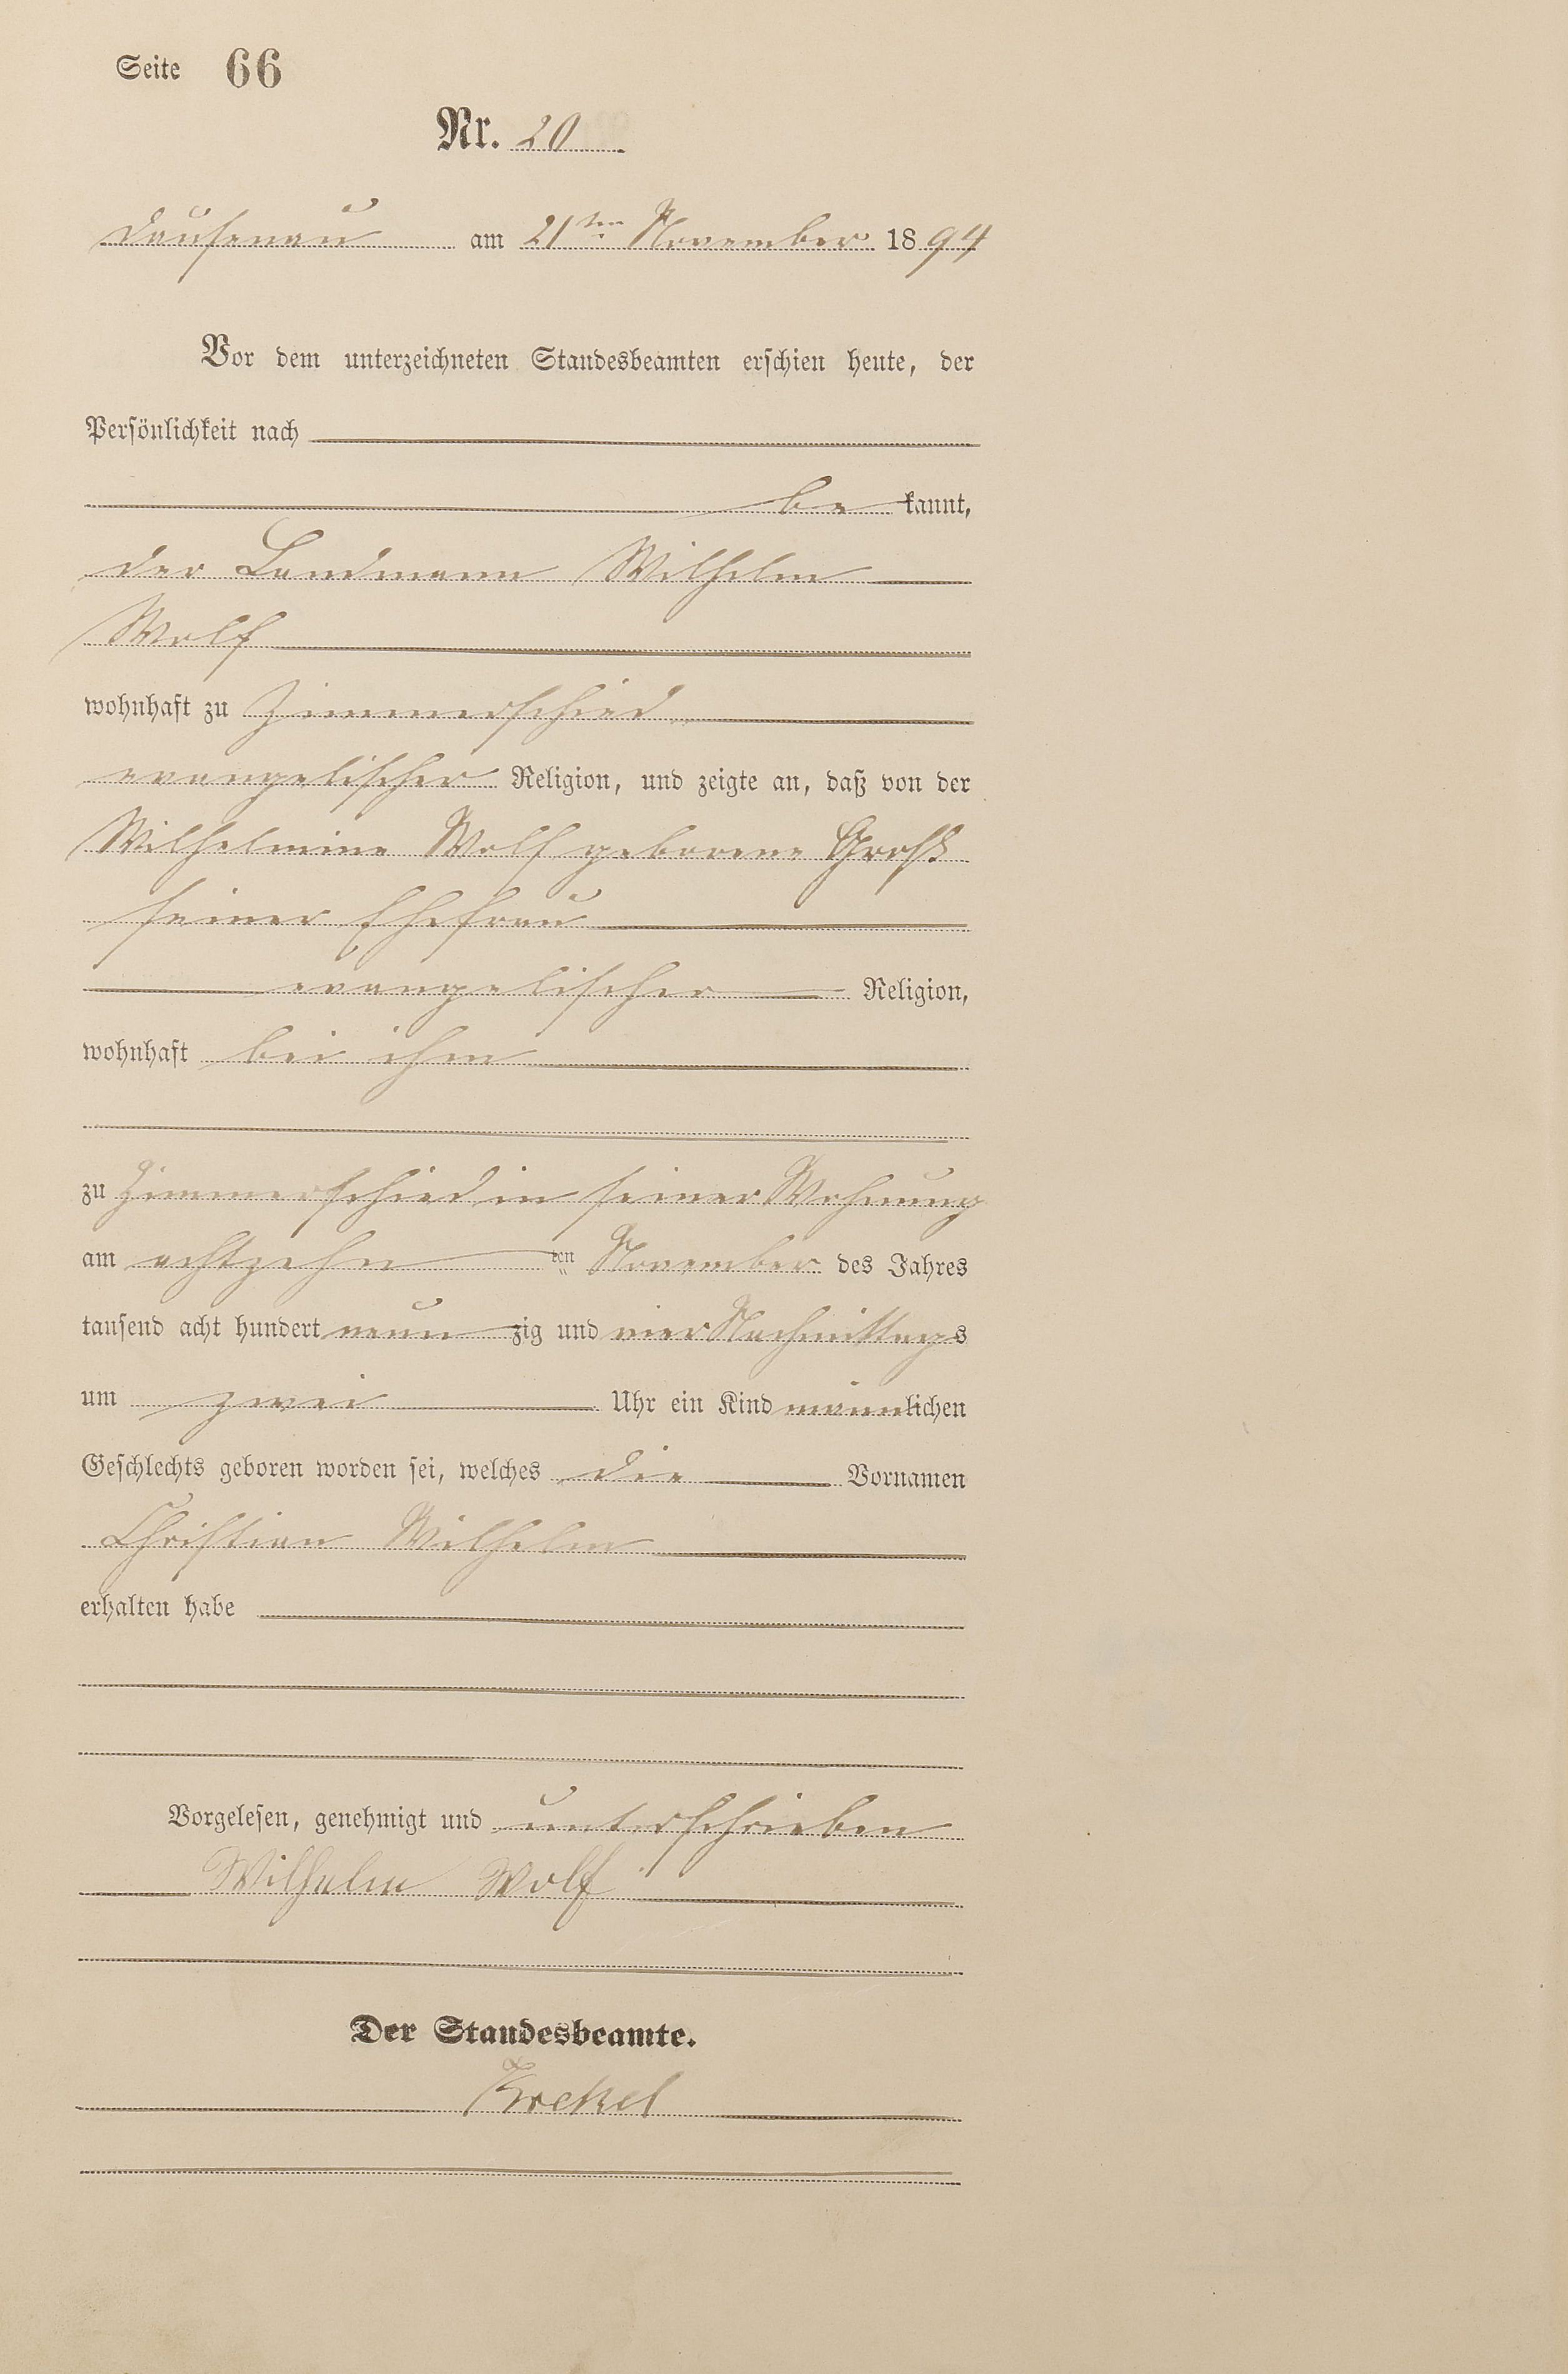 Seite 66
Nr. 20.
Dausenau am 21ten November 1894
Vor dem unterzeichneten Standesbeamten erschien heute, der
Persönlichkeit nach
bekannt,
der Landmann Wilhelm
Wolf
wohnhaft zu Zimmerschied
evangelischer Religion, und zeigte an, daß von der
Wilhelmine Wolf geborene Groß
seiner Ehefrau
evangelischer Religion,
wohnhaft bei ihm
zu Zimmerschied in seiner Wohnung
am achtzehn ten November des Jahres
tausend acht hundert neunzig und vier Nachmittags
um zwei Uhr ein Kind männlichen
Geschlechts geboren worden sei, welches die Vornamen
Christian Wilhelm
erhalten habe
Vorgelesen, genehmigt und unterschrieben
Wilhelm Wolf
Der Standesbeamte.
Krekel